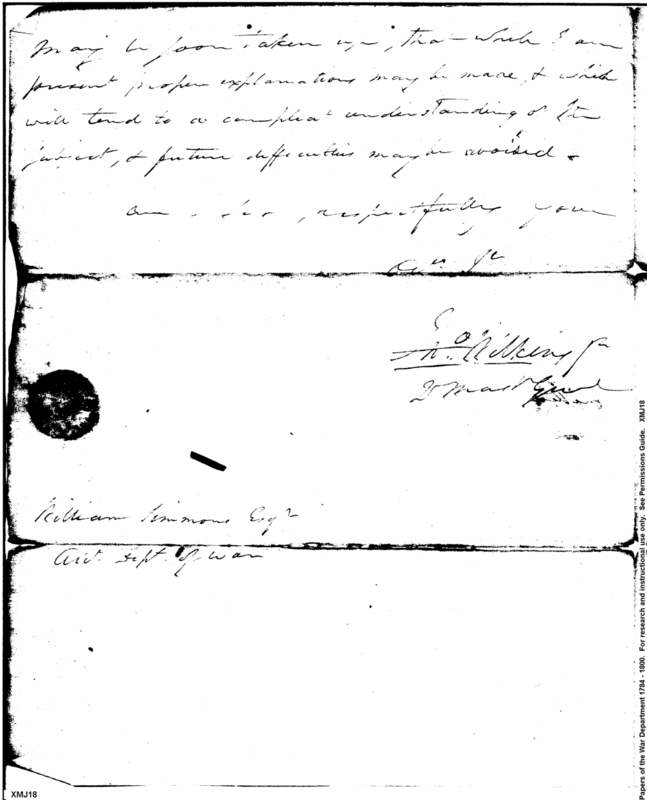 may be soon taken up, that while I am
present proper explanations may be made, & which
will tend to a compleat understanding of the
subject, & future difficulties may be avoided.
am Sir, respectfully your
Jno Wilkins Jr
Qr Mastr Genl
William Simmons Esqr
Acct. Dept. of War
XMJ18
Papers of the War Department 1784 - 1800. For research and instructional use only. See Permissions Guide. XMJ18